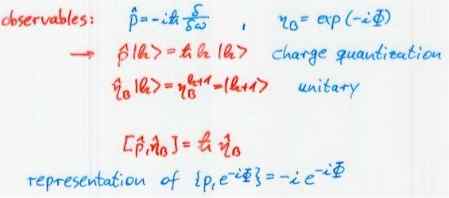 observables: p̂ = -iℏ δ/δω , η_B = exp(-iΦ)
→ p̂|k> = ℏk|k> charge quantization
η̂_B|k> = η_B^{k+1} = |k+1> unitary
[p̂,η̂_B] = ℏ η̂_B
representation of {p, e^{-iΦ}} = -i e^{-iΦ}